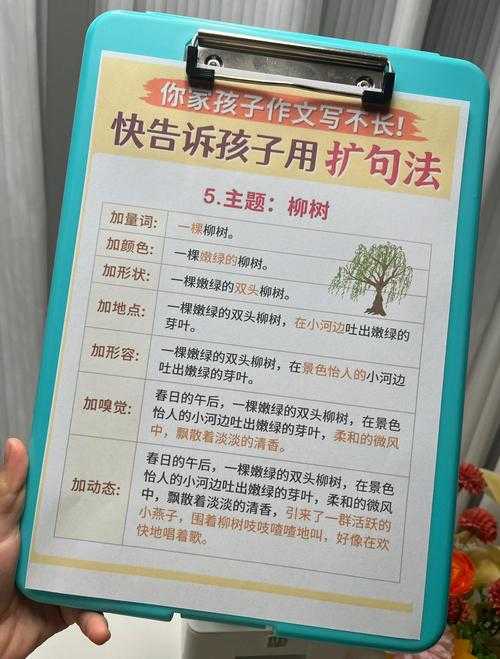 你家孩子作文写不长!
快告诉孩子用扩句法
5.主题：柳树
加量词: 一棵柳树。
加颜色: 一棵嫩绿的柳树。
加形状: 一棵嫩绿的双头柳树。
加地点: 一棵嫩绿的双头柳树，在小河边吐出嫩绿的
芽叶。
加形容: 一棵嫩绿的双头柳树，在景色怡人的小河边
吐出嫩绿的芽叶。
加嗅觉: 春日的午后，一棵嫩绿的双头柳树，在景色
怡人的小河边吐出嫩绿的芽叶，柔和的微风
中，飘散着淡淡的清香。
加动态: 春日的午后，一棵嫩绿的双头柳树，在景色
怡人的小河边吐出嫩绿的芽叶，柔和的微风
中，飘散着淡淡的清香，引来了一群活跃的
小燕子，围着柳树吱吱喳喳地叫，好像在欢
快地唱着歌。